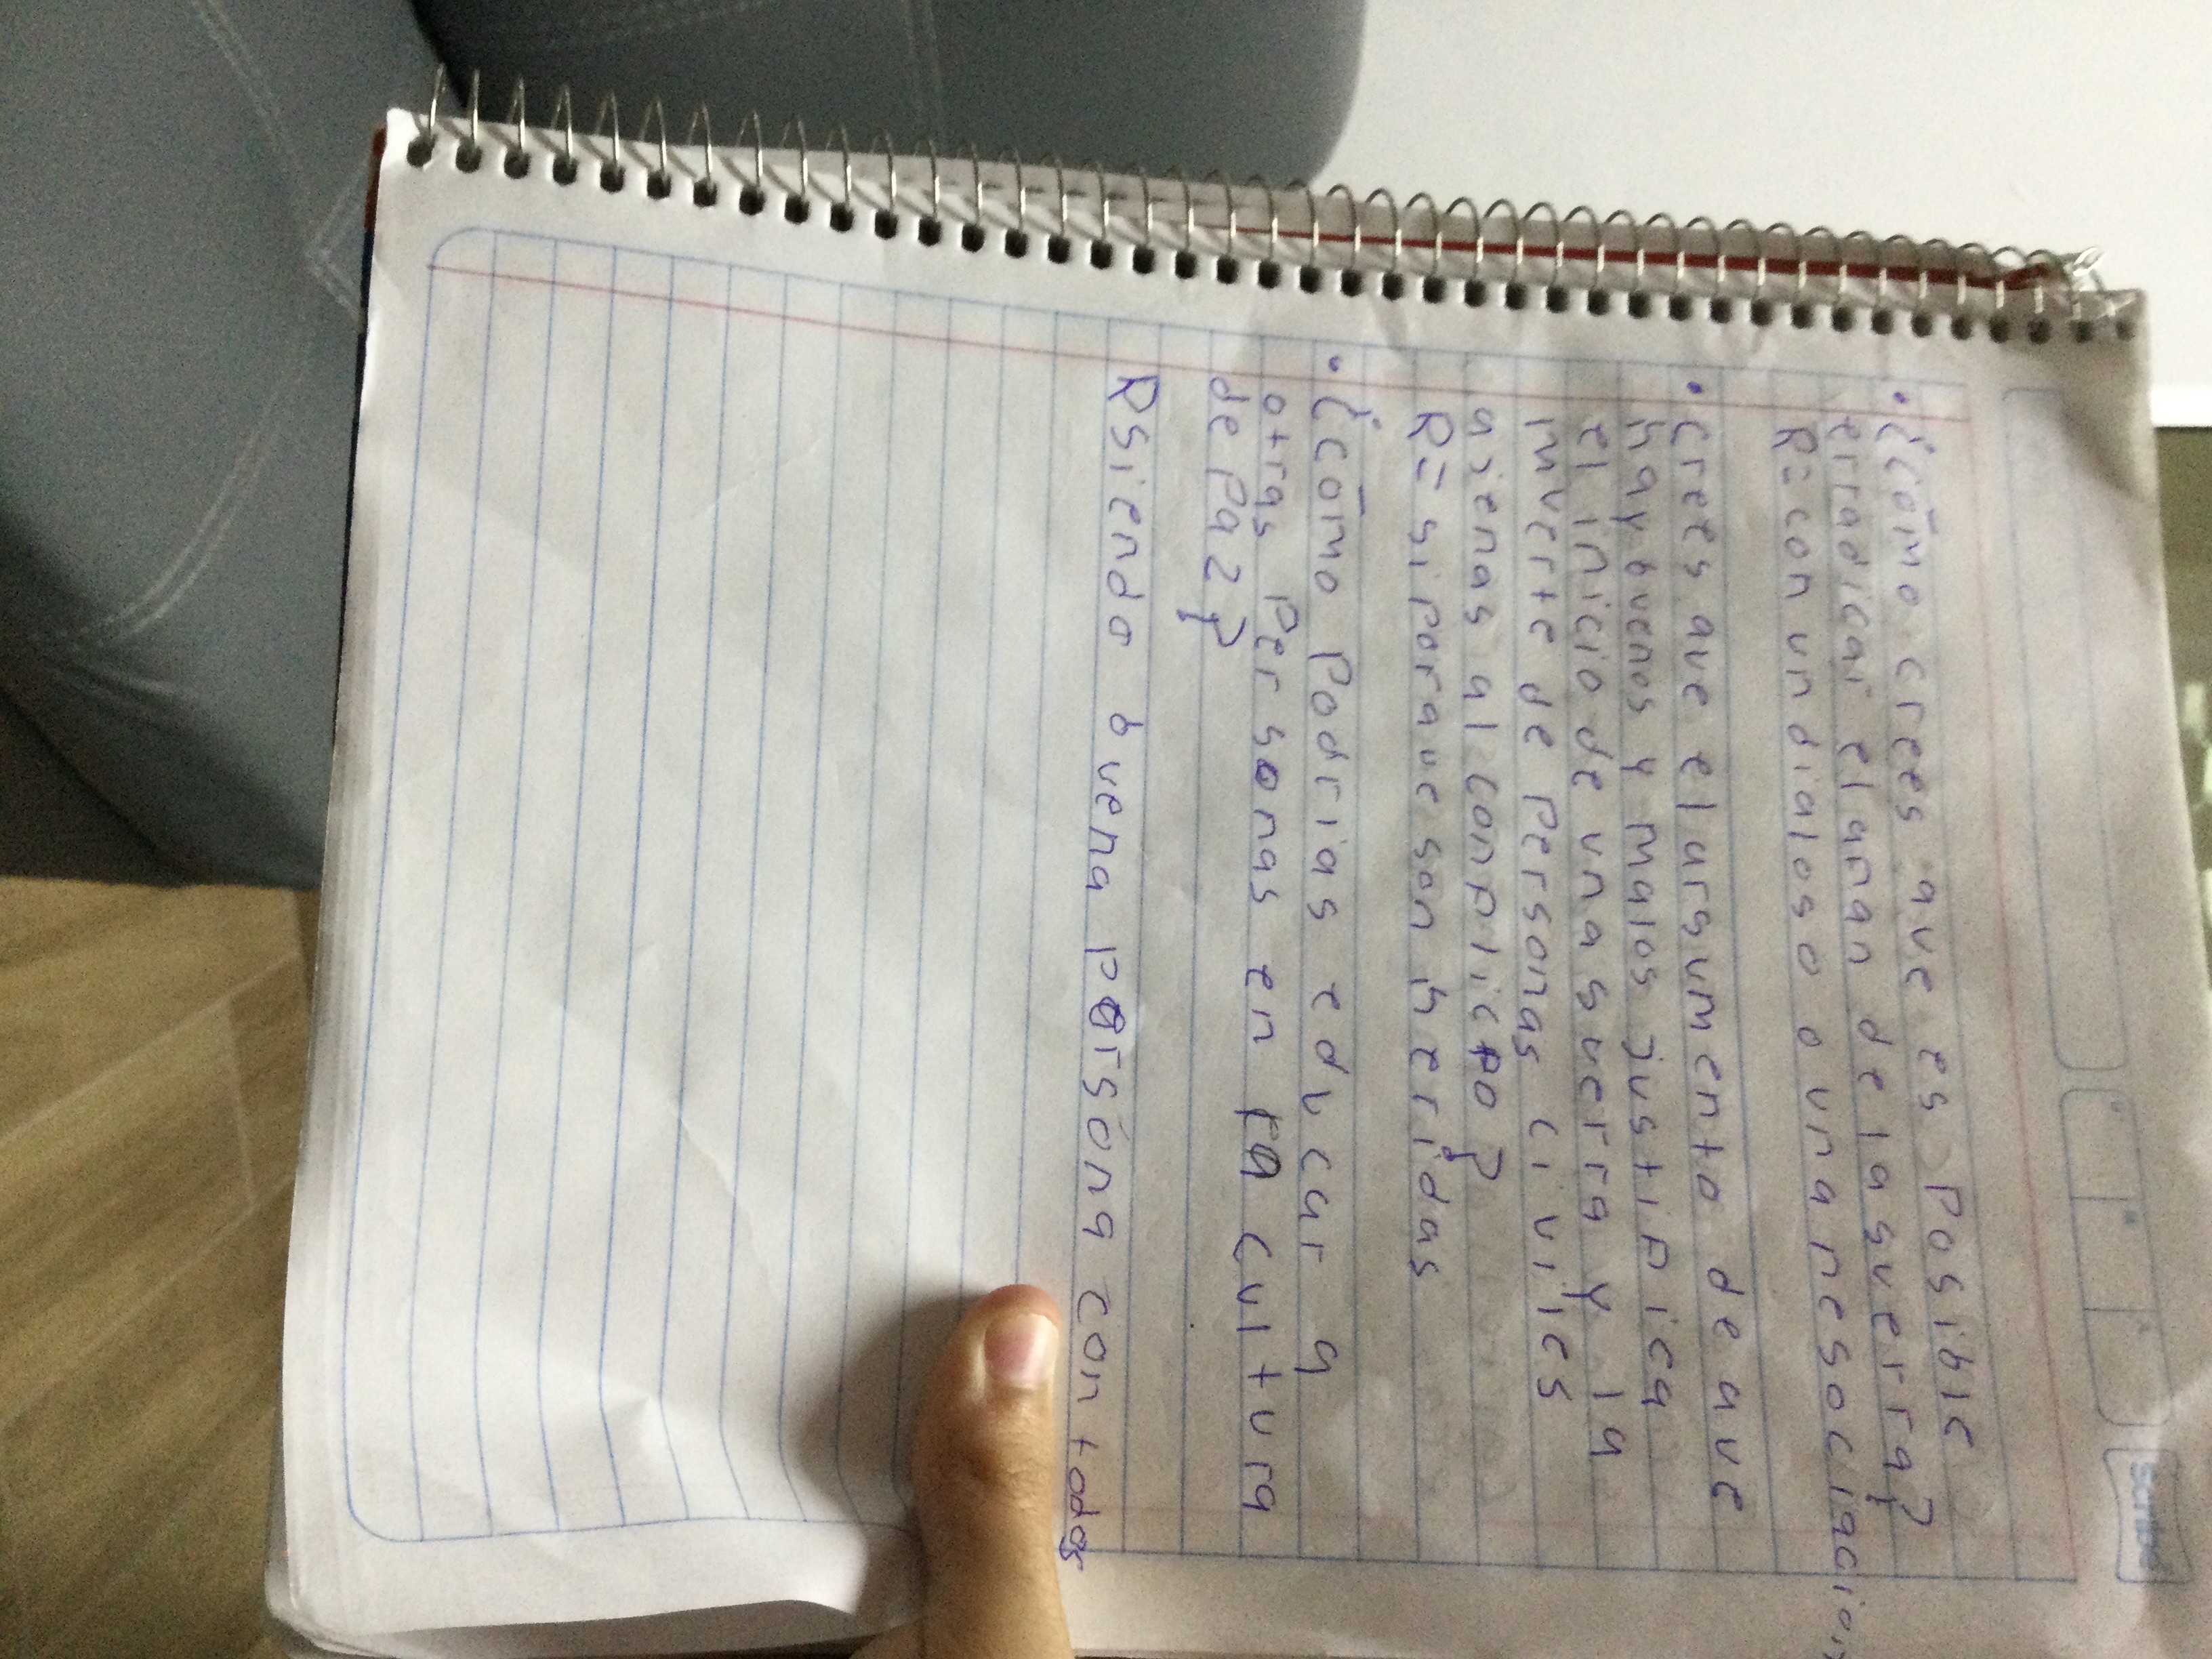 Scribe
• ¿Cómo crees que es posible
erradicar el afan de la guerra?
R= con un dialogo o una negociacion
• crees que el argumento de que
hay buenos y malos justifica
el inicio de una guerra y la
muerte de personas civiles
ajenas al conflicto?
R= si porque son heridas
• ¿Cómo podrias educar a
otras personas en la cultura
de paz?
R siendo buena persona con todos